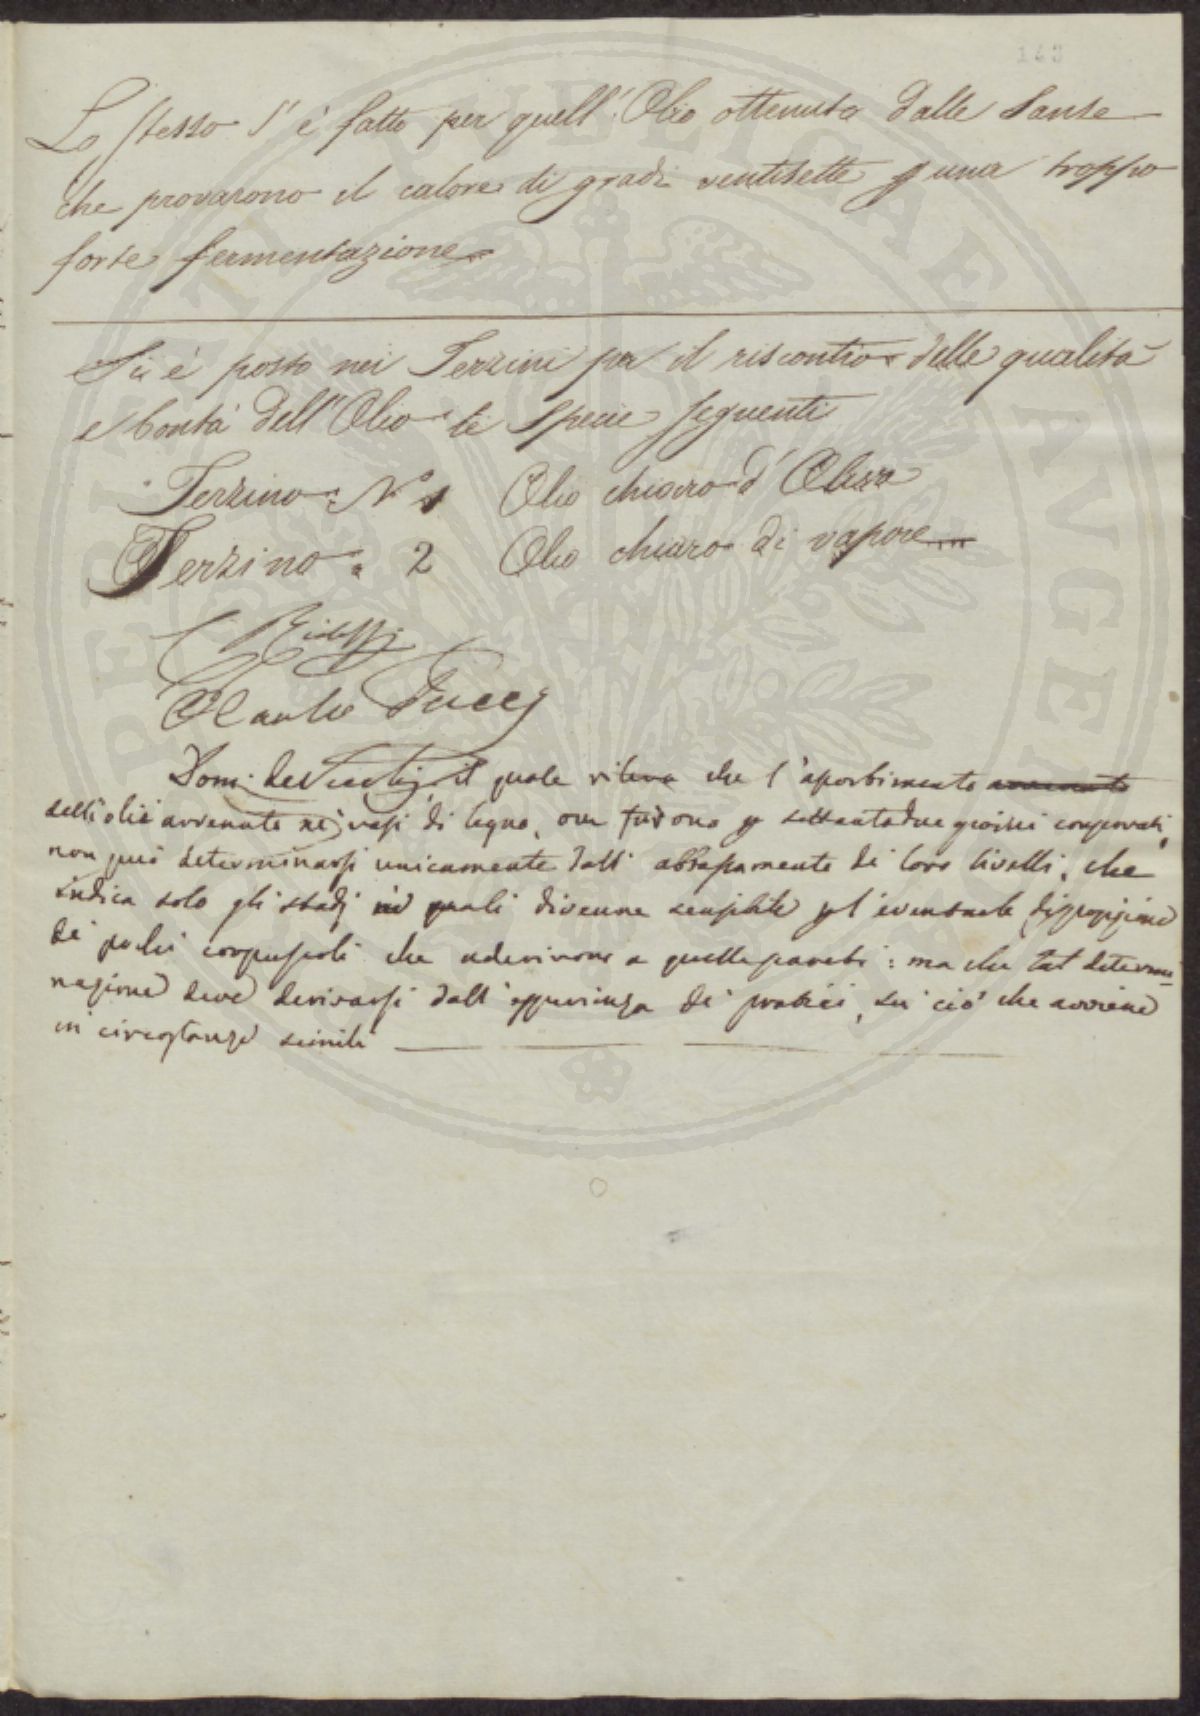 143
Lo stesso s'è fatto per quell'Olio ottenuto dalle Sanse
che provarono il calore di gradi ventisette p una troppo
forte fermentazione
Si è posto nei Terzini per il riscontro delle qualità
e bontà dell'Olio le specie seguenti
Terzino N 1 Olio chiaro d'
Terzino " 2 Olio chiaro di vapore
Ridolfi
il quale rileva che l'assorbimento avvenuto
delli olii avvenuto ne' vasi di legno, ove furono p settantadue giorni conservati,
non può determinarsi unicamente dall'abbassamento di loro livelli, che
indica solo gli stadj ne' quali divenne sensibile p l'eventuale
di pochi corpuscoli che aderivono a quelle pareti: ma che tal determi
nazione deve derivarsi dall'esperienza de' pratici, su ciò che avviene
in circostanze simili